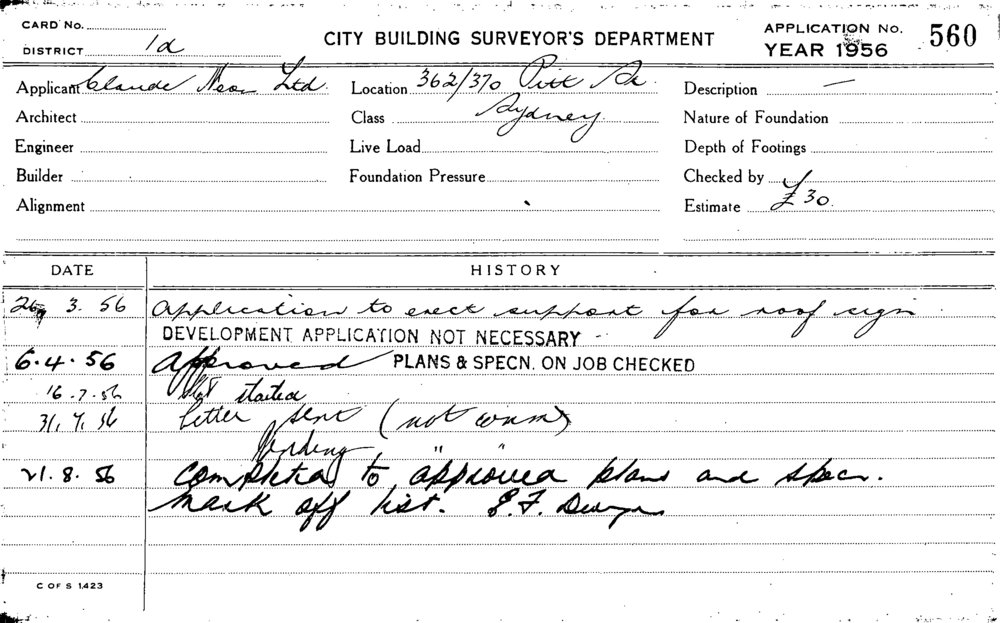 CARD No.
DISTRICT 1d
CITY BUILDING SURVEYOR'S DEPARTMENT
APPLICATION No. 560
YEAR 1956
Applicant Claude Neon Ltd.
Location 362/370 Pitt St.
Description —
Architect
Class Sydney
Nature of Foundation
Engineer
Live Load
Depth of Footings
Builder
Foundation Pressure
Checked by
Alignment
Estimate £30
DATE HISTORY
26.3.56 Application to erect support for roof sign
DEVELOPMENT APPLICATION NOT NECESSARY
6.4.56 Approved PLANS & SPECN. ON JOB CHECKED
16.7.56 Not started
31.7.56 letter sent (not comm)
Pending " "
21.8.56 Completed to approved plans and specn.
Mark off list. E.F.
C OF S 1423